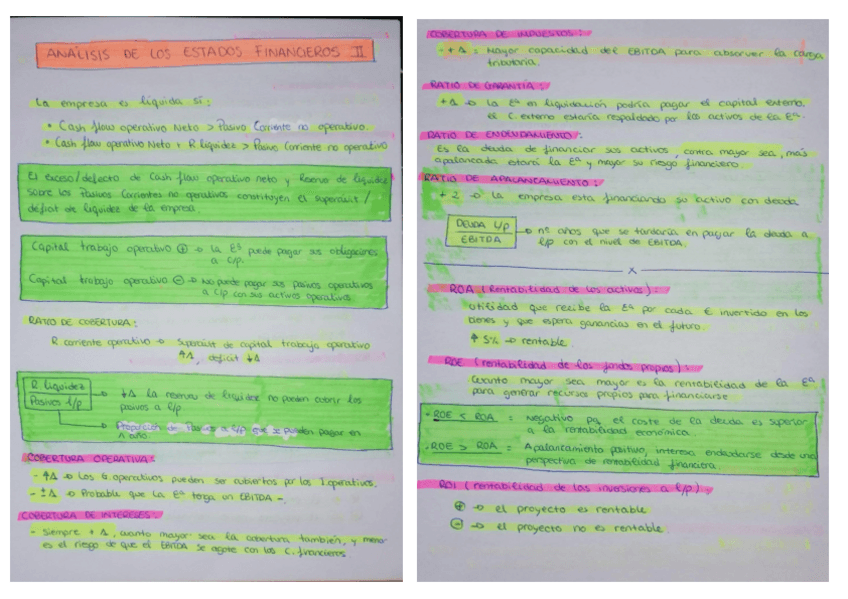 ANÁLISIS DE LOS ESTADOS FINANCIEROS II
La empresa es líquida si:
• Cash flow operativo Neto > Pasivo Corriente no operativo.
• Cash flow operativo Neto + R liquidez > Pasivo Corriente no operativo
El exceso/defecto de Cash flow operativo neto y Reserva de liquidez
sobre los Pasivos Corrientes no operativos constituyen el superávit /
déficit de liquidez de la empresa.
Capital trabajo operativo ⊕ → La Eª puede pagar sus obligaciones
a c/p.
Capital trabajo operativo ⊖ → No puede pagar sus pasivos operativos
a c/p con sus activos operativos.
RATIO DE COBERTURA:
R corriente operativo → Superávit de capital trabajo operativo
↑1, déficit ↓1
R liquidez
Pasivos l/p
→ ↓1 La reserva de liquidez no pueden cubrir los
pasivos a l/p
→ Proporción de Pasivos a l/p que se pueden pagar en
1 año.
COBERTURA OPERATIVA:
- ↑1 → Los G operativos pueden ser cubiertos por los I operativos.
- ± 1 → Probable que la Eª tenga un EBITDA -.
COBERTURA DE INTERESES:
- Siempre + 1, cuanto mayor sea la cobertura también, y menor
es el riesgo de que el EBITDA se agote con los C. financieros
COBERTURA DE IMPUESTOS:
- + 1 = Mayor capacidad del EBITDA para absorver la carga
tributaria.
RATIO DE GARANTÍA:
+ 1 → La Eª en liquidación podría pagar el capital externo.
el C. externo estaría respaldado por los activos de la Eª.
RATIO DE ENDEUDAMIENTO:
Es la deuda de financiar sus activos, contra mayor sea, más
apalancada estará la Eª y mayor su riesgo financiero.
RATIO DE APALANCAMIENTO:
+ 2 → La empresa esta financiando su activo con deuda
DEUDA L/p
EBITDA
→ nº años que se tardaría en pagar la deuda a
l/p con el nivel de EBITDA.
x
ROA (Rentabilidad de los activos):
Utilidad que recibe la Eª por cada € invertido en los
bienes y que espera ganancias en el futuro.
↑ 5% → rentable.
ROE (rentabilidad de los fondos propios):
Cuanto mayor sea mayor es la rentabilidad de la Eª
para generar recursos propios para financiarse
- ROE < ROA = Negativo pq el coste de la deuda es superior
a la rentabilidad económica.
- ROE > ROA = Apalancamiento positivo, interesa endeudarse desde una
perspectiva de rentabilidad financiera.
ROI (rentabilidad de las inversiones a l/p):
⊕ → el proyecto es rentable
⊖ → el proyecto no es rentable